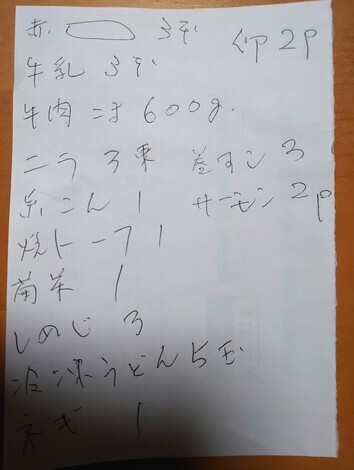 赤. 3本
卵 2P
牛乳 3本
牛肉 こま 600g.
ニラ 3束
巻ずし 3
糸こん 1
サーモン 2p
焼トーフ 1
菊菜 1
しめじ 3
冷凍うどん 5玉
ネギ 1